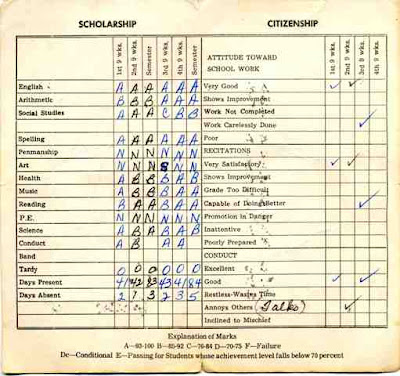 SCHOLARSHIP CITIZENSHIP
1st 9 wks. 2nd 9 wks. Semester 3rd 9 wks. 4th 9 wks. Semester 1st 9 wks. 2nd 9 wks. 3rd 9 wks. 4th 9 wks.
ATTITUDE TOWARD
SCHOOL WORK
English A A A A A A Very Good ✓ ✓
Arithmetic B B B A A A Shows Improvement
Social Studies A A A C B B Work Not Completed
Work Carelessly Done ✓
Spelling A A A A A A Poor
Penmanship N N N N N N RECITATIONS
Art N N N S N N Very Satisfactory ✓ ✓
Health A B B B A B Shows Improvement
Music A B B A A A Grade Too Difficult
Reading B A A B A B Capable of Doing Better ✓
P.E. N N N N N N Promotion in Danger
Science A B B A B Inattentive
Conduct A B A A Poorly Prepared
Band CONDUCT
Tardy 0 0 0 0 0 0 Excellent
Days Present 41 42 83 43 41 84 Good ✓ ✓
Days Absent 2 1 3 2 3 5 Restless-Wastes Time
Annoys Others (Talks) ✓
Inclined to Mischief
Explanation of Marks
A—93-100 B—85-92 C—76-84 D—70-75 F—Failure
Dc—Conditional E—Passing for Students whose achievement level falls below 70 percent